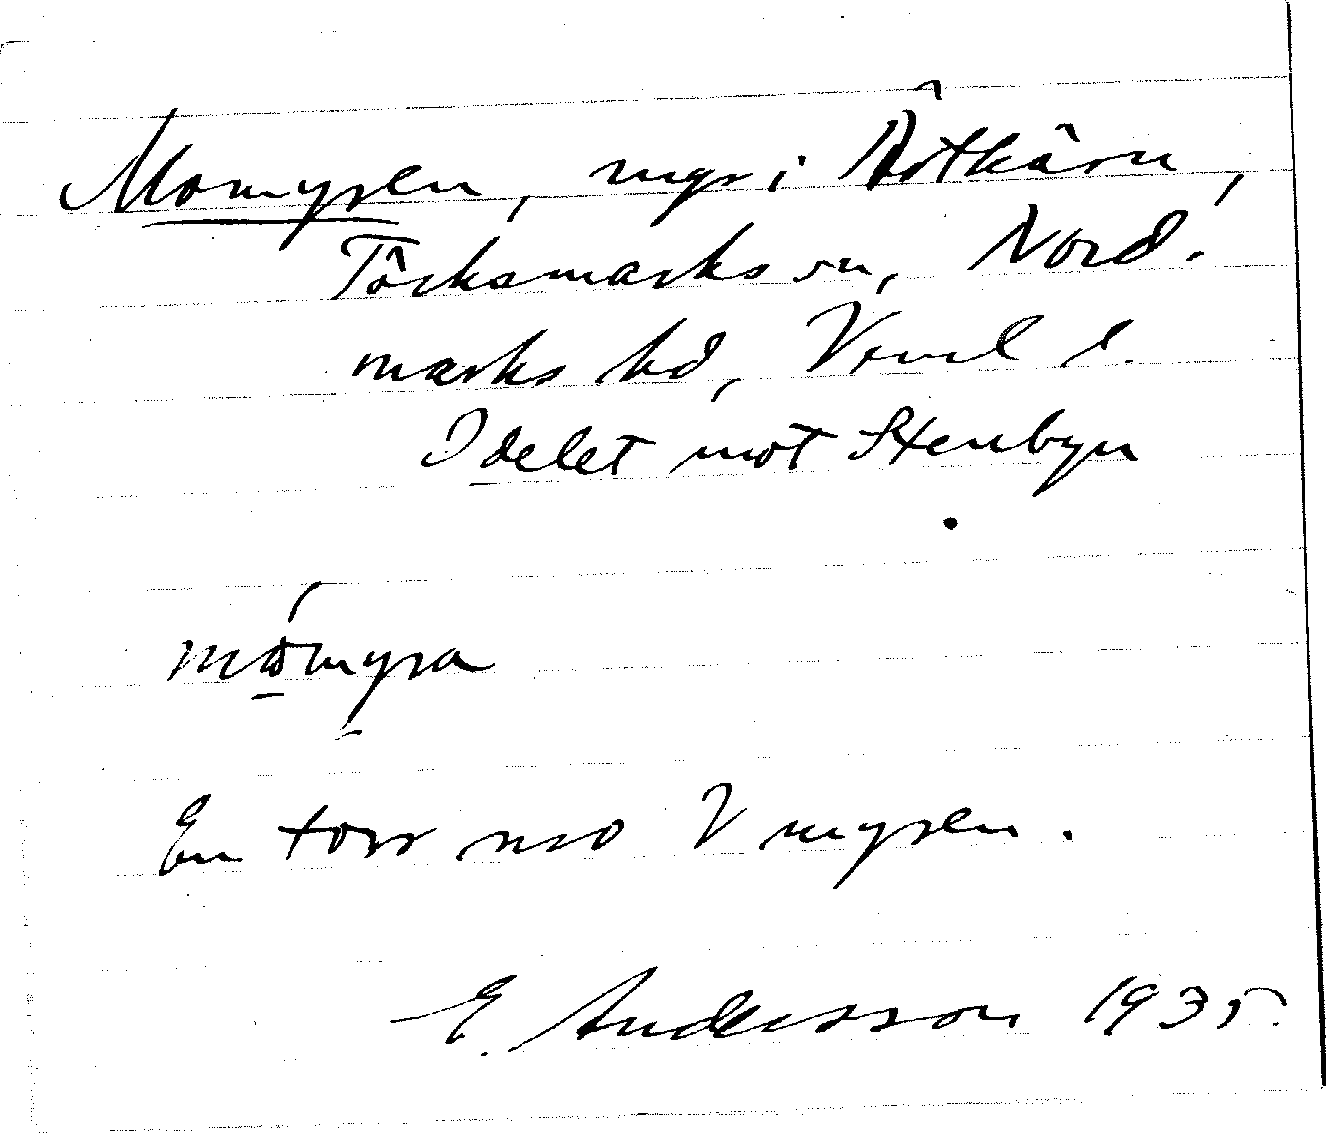 Momyren, myr i Östkärn,
Töcksmarks sn, Nord-
marks hd, Verml l.
I delet mot Stenbyn
mo̱myra
En torr mo V myren.
E. Andersson 1935.